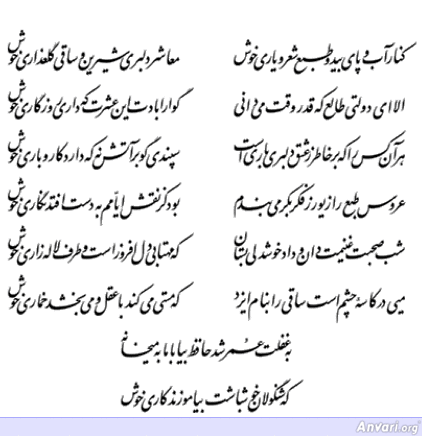 کنار آب و پای بید و طبع شعر و یاری خوش معاشر دلبری شیرین و ساقی گلعذاری خوش
الا ای دولتی طالع که قدر وقت می‌دانی گوارا بادت این عشرت که داری روزگاری خوش
هر آن کس را که بر خاطر ز عشق دلبری باری است سپندی گو بر آتش نه که دارد کار و باری خوش
عروس طبع را زیور ز فکر بکر می‌بندم بود کز نقش ایّامم به دست افتد نگاری خوش
شب صحبت غنیمت دان و داد خوشدلی بستان که مهتابی دل افروز است و طرف لاله زاری خوش
میی در کاسهٔ چشم است ساقی را بنام ایزد که مستی می‌کند با عقل و می‌بخشد خماری خوش
به غفلت عمر شد حافظ بیا با ما به میخانه
که شنگولان خوش باشت بیاموزند کاری خوش
Anvari.org